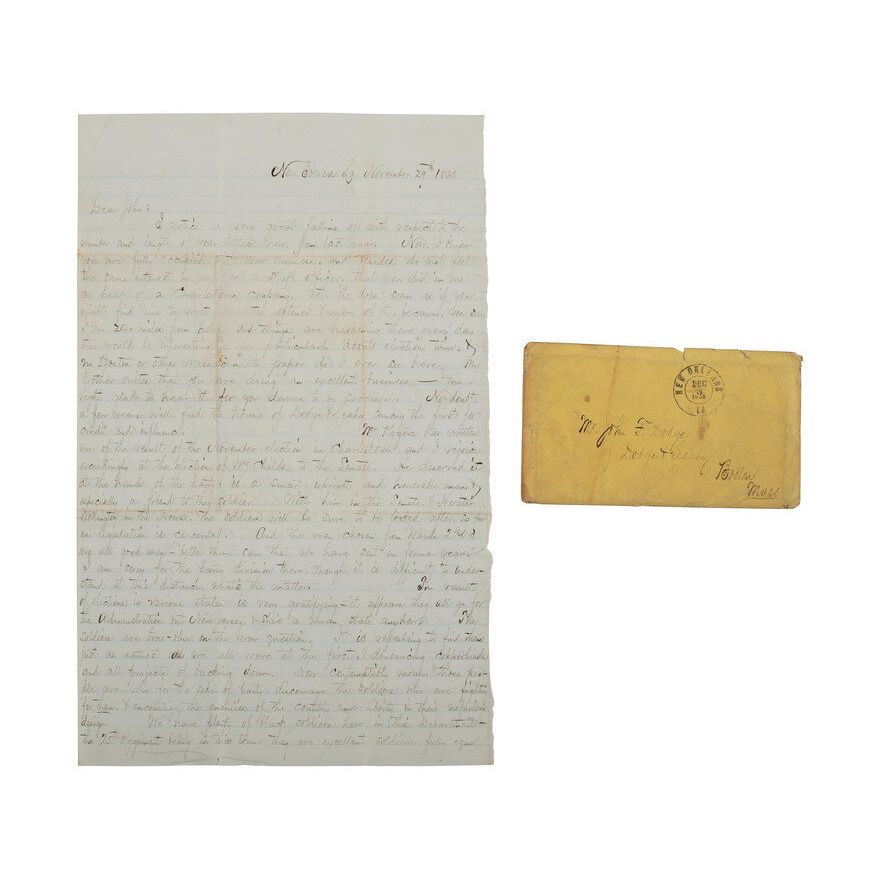 New Iberia La. November 29th 1863
Dear John:
I notice a very great falling off with respect to the
number and length of your letters from last year. Now I know
you are fully occupied your business, and besides do not feel
the same interest in a staff officer, that you did in one
as head of a Charlestown company. Yet it does seem as if you
might find time to write oftener & more of the
I am 2000 miles from home and things are happening there every day
that would be interesting to me particularly about election time. &
no Boston or other Massachusetts paper did I ever see here. My
brother writes that you are doing an excellent business — I am
right glad to hear it for you deserve to be successful. No doubt
a few years will find the house of Dodge & among the first for
credit and influence. Mr Rogers has written
me of the result of the November election in Charlestown and I rejoice
exceedingly at the election of Mr Childs to the Senate. He deserved it
at the hands of the party is a smart, upright and honorable man &
especially a friend to the soldier. With him in the Senate, & Horatio
in the House, the soldiers will be sure to be looked after so far
as legislation is concerned. And the men chosen from Wards 2 & 3
are all good men — better than some that we have sent in former years.
I am sorry for the party division there, though it is difficult to under-
stand at this distance, what's the matter. The result
of elections in various states is very gratifying — it appears they all go for
the Administration but New Jersey, & she's a mean state anyhow. The
soldiers are true-blue on the war question. It is refreshing to find them
just as earnest as we all were at the first, & denouncing copperheads
and all projects of backing down. How contemptibly mean those peo-
ple are who for the sake of party discourage the soldiers who are fighting
for them, & encourage the enemies of the country and abetts in their nefarious
design. We have plenty of black soldiers here in this Department —
the 25th Regiment being in this town. they are excellent soldiers fully equal
NEW ORLEANS
DEC
LA
Mr. John F. Dodge
Dodge &
Boston
Mass